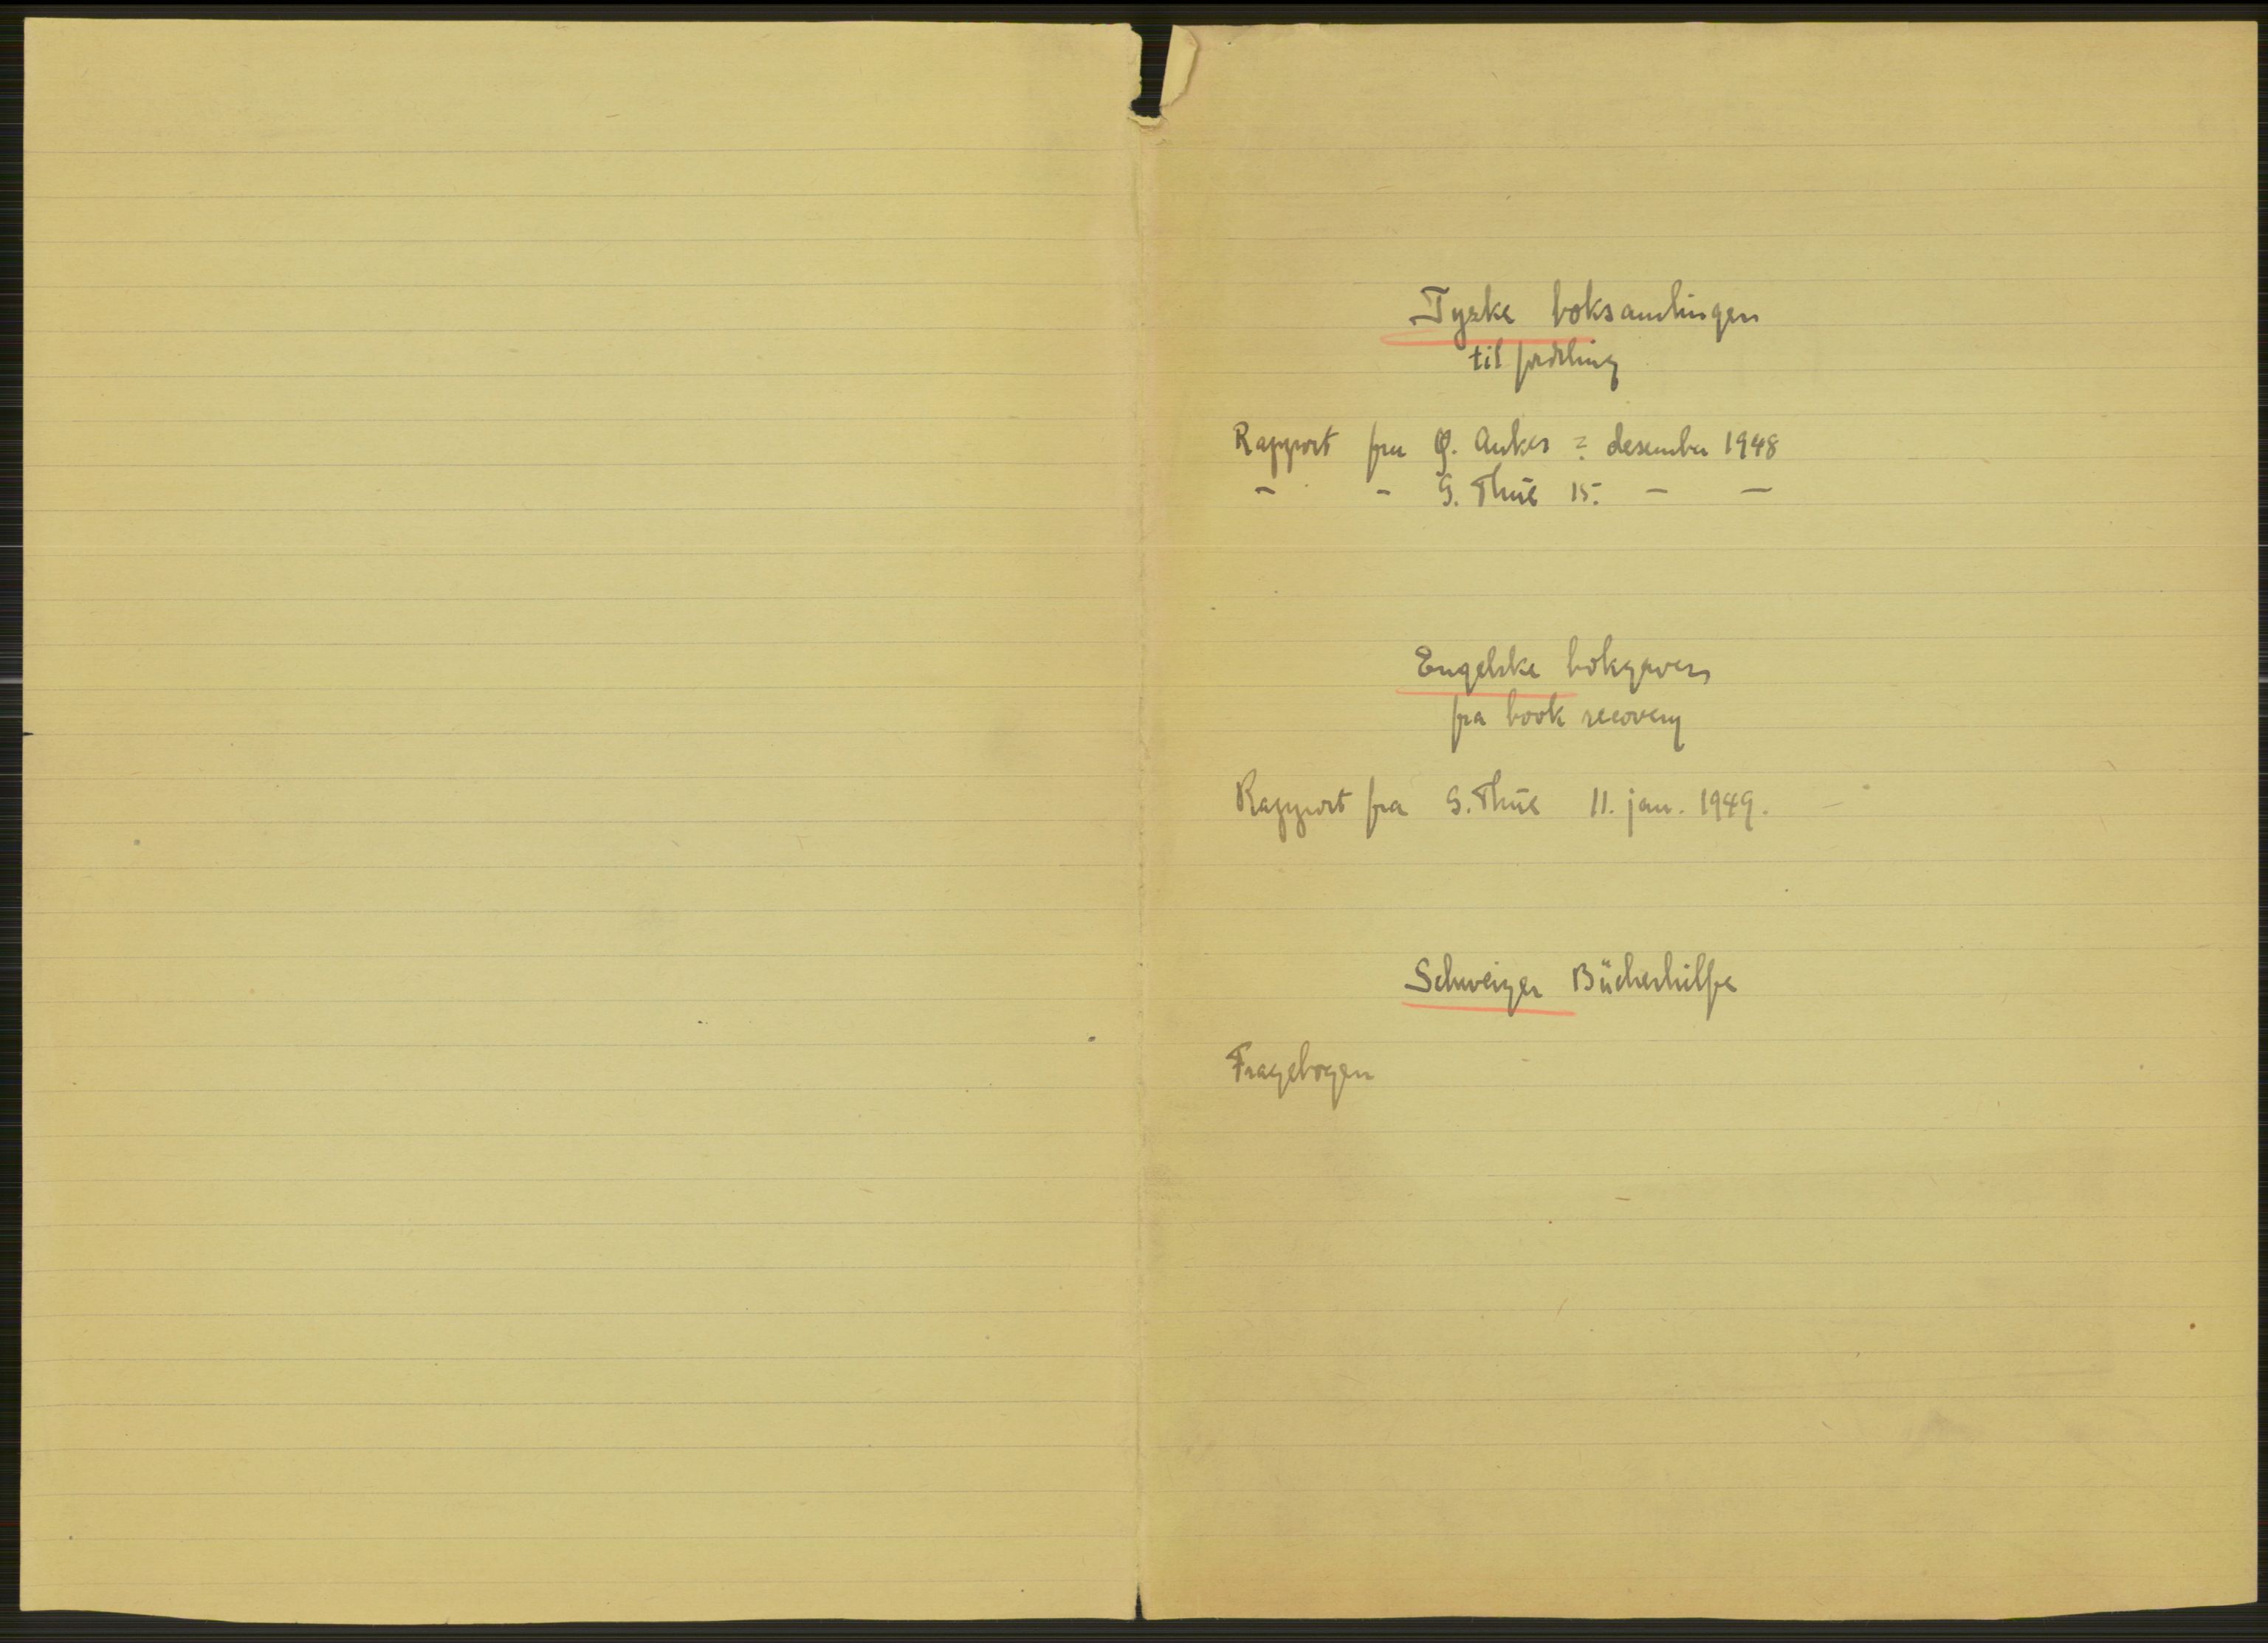 Tyske boksamlingen
til fordeling
Rapport fra Ø. Anker = desember 1948
- - G. Thue 15. - -
Engelske bokgaver
fra book recovery
Rapport fra G. Thue 11. jan. 1949.
Schweizer Bücherhilfe
Fragebogen